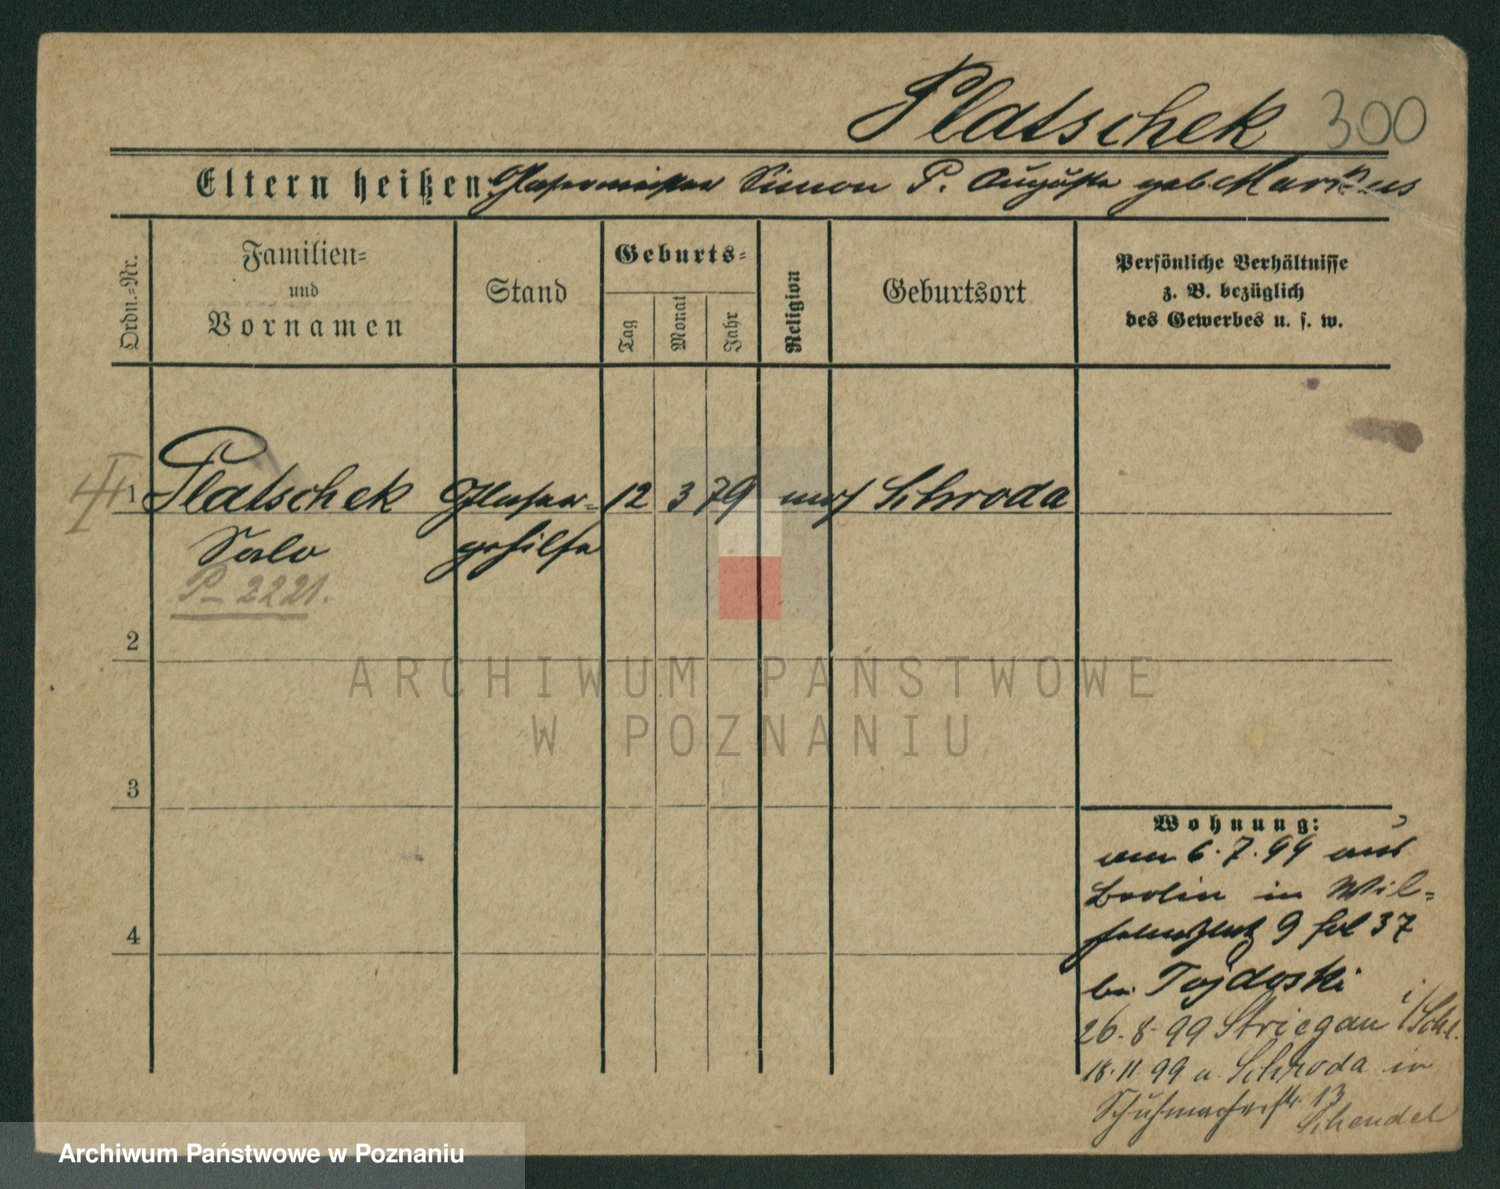 Platschek 300
Eltern heißen: Glasermeister Simon P. Auguste geb. Markus
Ordn.-Nr.
Familien-
und
Vornamen
Stand
Geburts-
Tag
Monat
Jahr
Religion
Geburtsort
Persönliche Verhältnisse
z. B. bezüglich
des Gewerbes u. s. w.
1 Platschek Glaser- 12 3 79 mos Schroda
Salo gehilfe
P-2221.
2
ARCHIWUM PAŃSTWOWE
W POZNANIU
3
Wohnung:
am 6.7.99 aus
Berlin in Wil-
helmsplatz 9 fol 37
bei
26.8.99 Striegau i/Schl.
18.11 99 a Schroda in
Schuhmacherstr 13
Schendel
4
Archiwum Państwowe w Poznaniu